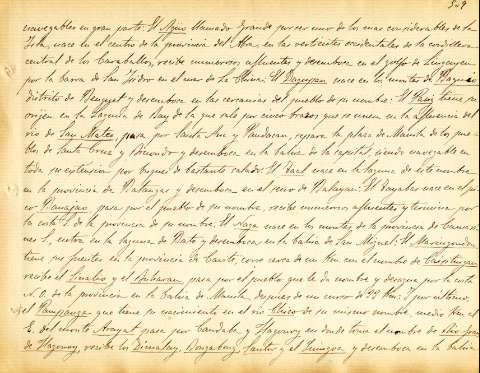 529
navegables en gran parte. El Agno llamado Grande por ser uno de los mas considerables de la
Isla, nace en el centro de la provincia del Abra, en las vertientes occidentales de la cordillera
central de los Caraballos, recibe numerosos afluentes y desemboca en el golfo de Lingayen
por la barra de San Isidro en el mar de la China: El Dagupan nace en los montes de
distrito de Benguet y desemboca en las cercanias del pueblo de su nombre: El Pasig tiene su
origen en la Laguna de Bay de la que sale por cinco brazos que se unen en la afluencia del
rio de San Mateo, pasa por Santa Ana y Pandacan, separa la plaza de Manila de los pue-
blos de Santa Cruz y Binondo y desemboca en la bahia de la capital, siendo navegable en
toda su estension por buques de bastante calado: El Taal nace en la laguna de este nombre
en la provincia de Batangas y desemboca en el seno de Balayan: El Tayabas nace en el pi-
co Banajao pasa por el pueblo de su nombre, recibe numerosos afluentes y termina por
la costa S. de la provincia de su nombre: El Naga nace en los montes de la provincia de Camari-
nes S., entra en la laguna de Bato y desemboca en la bahia de San Miguel: El Maragondon
tiene sus fuentes en la provincia de Cavite, corre cerca de un Km con el nombre de
recibe el y el pasa por el pueblo que le da nombre y desagua por la costa
N.O. de la provincia en la bahia de Manila, despues de un curso de 99 Km: Y por ultimo,
el Pampanga que tiene su nacimiento en el rio Chico de su mismo nombre, medio Km al
E. del monte Arayat pasa por Candaba y Hagonoy en donde toma el nombre de Rio
de Hagonoy, recibe los y el y desemboca en la bahia